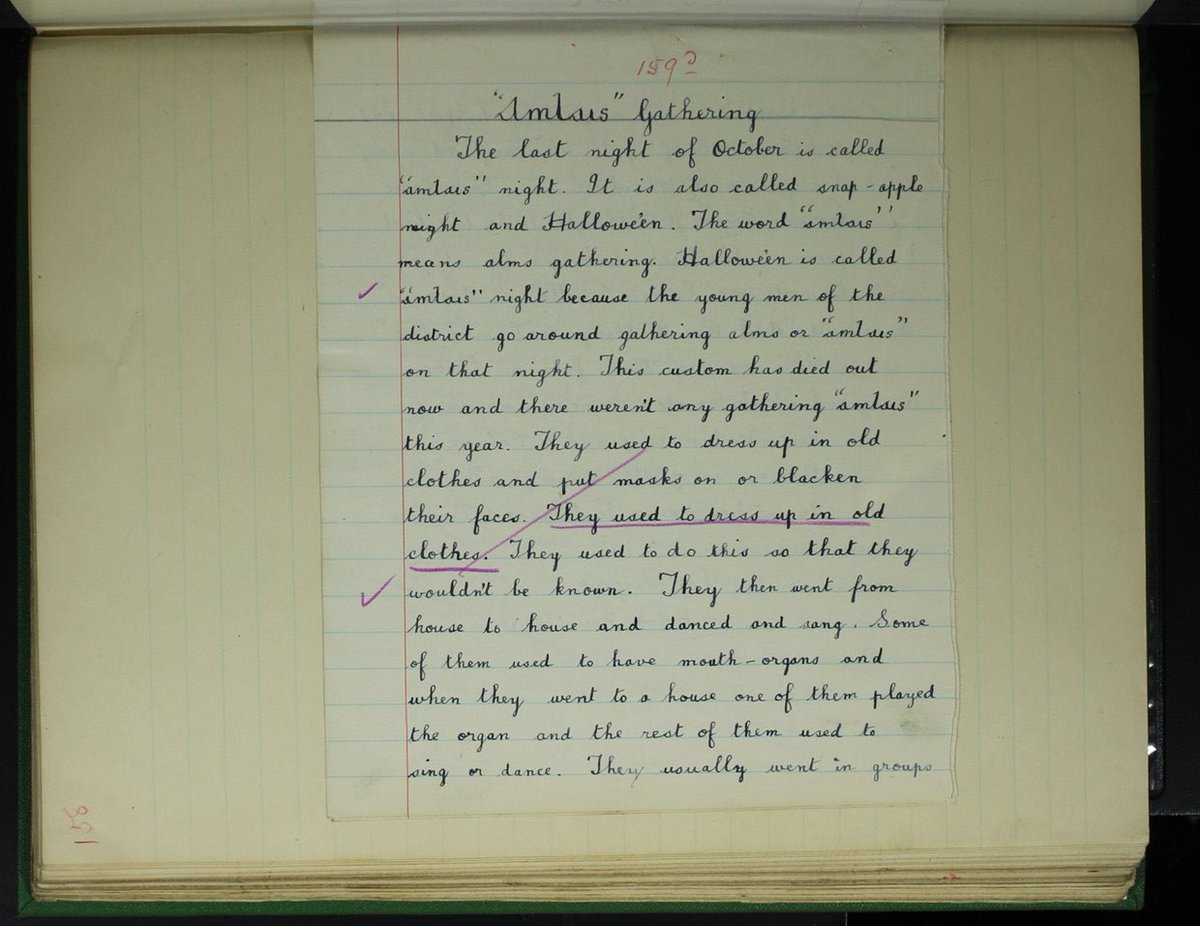 159
"Amlais" Gathering
The last night of October is called
"amlais" night. It is also called snap-apple
night and Hallowe'en. The word "amlais"
means alms gathering. Hallowe'en is called
"amlais" night because the young men of the
district go around gathering alms or "amlais"
on that night. This custom has died out
now and there weren't any gathering "amlais"
this year. They used to dress up in old
clothes and put masks on or blacken
their faces. They used to dress up in old
clothes. They used to do this so that they
wouldn't be known. They then went from
house to house and danced and sang. Some
of them used to have mouth-organs and
when they went to a house one of them played
the organ and the rest of them used to
sing or dance. They usually went in groups